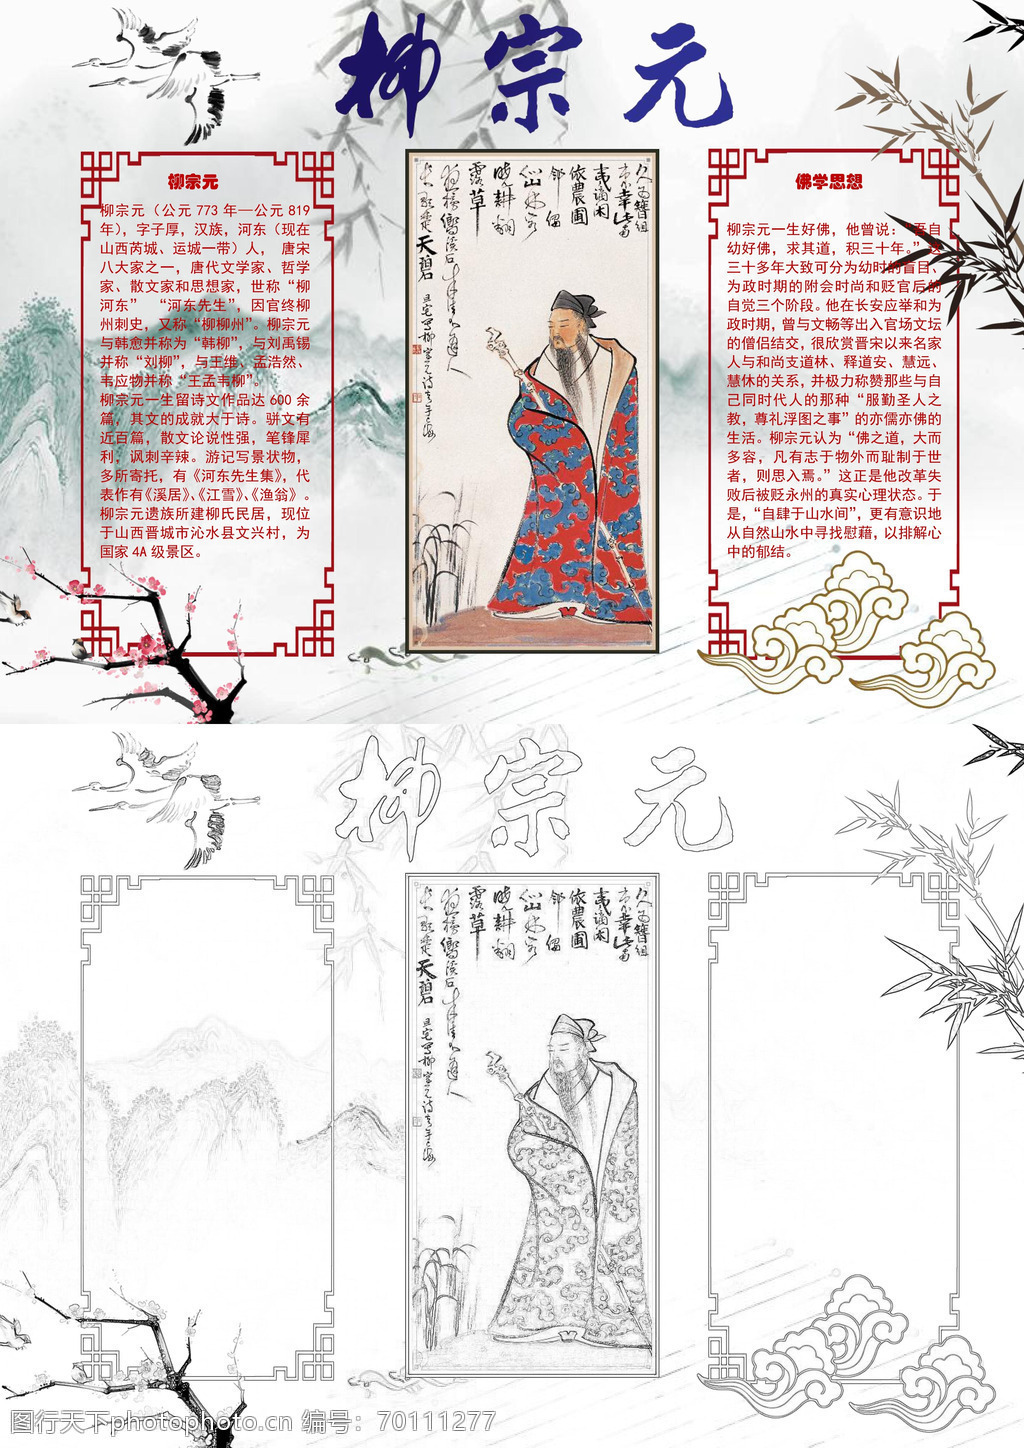 柳宗元
柳宗元
柳宗元（公元773年—公元819
年），字子厚，汉族，河东（现在
山西芮城、运城一带）人， 唐宋
八大家之一，唐代文学家、哲学
家、散文家和思想家，世称“柳
河东” “河东先生”，因官终柳
州刺史，又称“柳柳州”。柳宗元
与韩愈并称为“韩柳”，与刘禹锡
并称“刘柳”，与王维、孟浩然、
韦应物并称“王孟韦柳”。
柳宗元一生留诗文作品达600余
篇，其文的成就大于诗。骈文有
近百篇，散文论说性强，笔锋犀
利，讽刺辛辣。游记写景状物，
多所寄托，有《河东先生集》，代
表作有《溪居》、《江雪》、《渔翁》。
柳宗元遗族所建柳氏民居，现位
于山西晋城市沁水县文兴村，为
国家4A级景区。
久为簪组
束幸此南
夷谪闲
依農圃
邻偶
似山林客
晓耕翻
露草
夜榜響溪石
来往不逢人
长歌楚天碧
佛学思想
柳宗元一生好佛，他曾说：“吾自
幼好佛，求其道，积三十年。”这
三十多年大致可分为幼时的盲目、
为政时期的附会时尚和贬官后的
自觉三个阶段。他在长安应举和为
政时期，曾与文畅等出入官场文坛
的僧侣结交，很欣赏晋宋以来名家
人与和尚支道林、释道安、慧远、
慧休的关系，并极力称赞那些与自
己同时代人的那种“服勤圣人之
教，尊礼浮图之事”的亦儒亦佛的
生活。柳宗元认为“佛之道，大而
多容，凡有志于物外而耻制于世
者，则思入焉。”这正是他改革失
败后被贬永州的真实心理状态。于
是，“自肆于山水间”，更有意识地
从自然山水中寻找慰藉，以排解心
中的郁结。
柳宗元
久为簪组
束幸此南
夷谪闲
依農圃
邻偶
似山林客
晓耕翻
露草
夜榜響溪石
来往不逢人
长歌楚天碧
图行天下photophoto.cn 编号：70111277